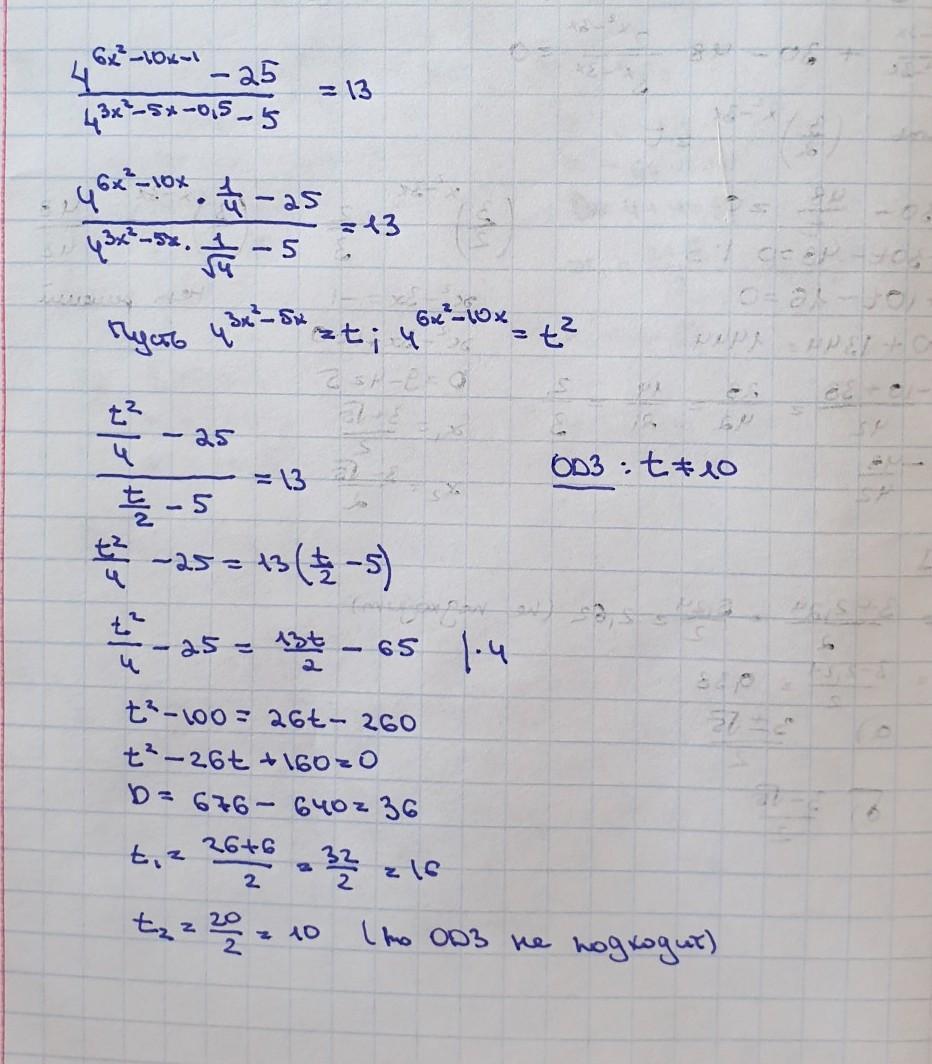 (4^(6x²-10x-1) - 25)/(4^(3x²-5x-0,5) - 5) = 13
(4^(6x²-10x) · 1/4 - 25)/(4^(3x²-5x) · 1/√4 - 5) = 13
Пусть 4^(3x²-5x) = t; 4^(6x²-10x) = t²
(t²/4 - 25)/(t/2 - 5) = 13 ОДЗ: t ≠ 10
t²/4 - 25 = 13(t/2 - 5)
t²/4 - 25 = 13t/2 - 65 |·4
t² - 100 = 26t - 260
t² - 26t + 160 = 0
D = 676 - 640 = 36
t₁ = (26+6)/2 = 32/2 = 16
t₂ = 20/2 = 10 (по ОДЗ не подходит)